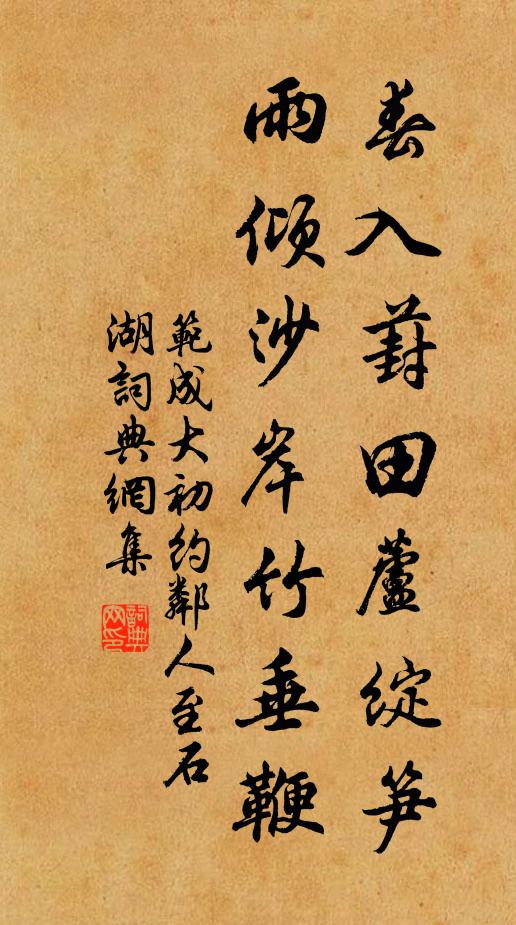 春入葑田蘆綻笋
雨傾沙岸竹垂鞭
範成大初約鄰人至石
湖詞典網集
詞典
网印